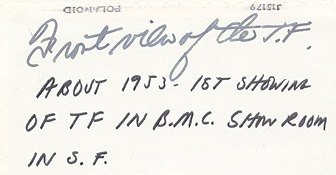 POLAROID J15179
Front view of the T.F.
ABOUT 1953 - 1ST SHOWING
OF TF IN B.M.C. SHOWROOM
IN S.F.